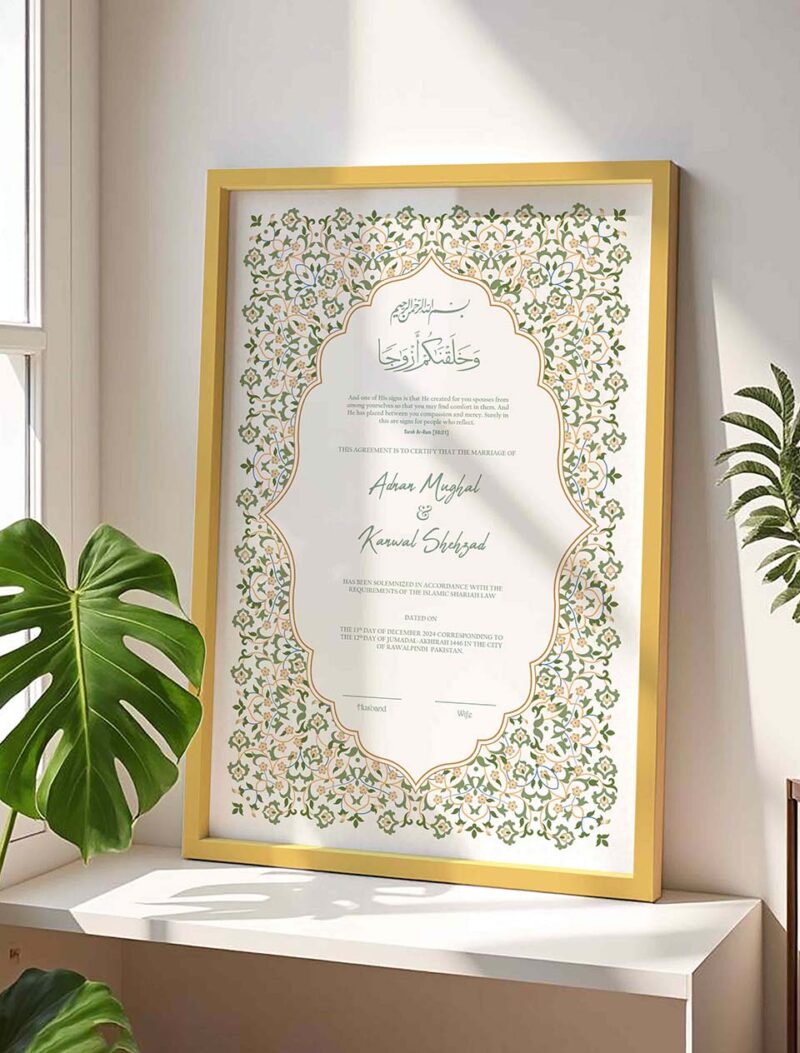 بسم الله الرحمن الرحيم
وَخَلَقْنَٰكُمْ أَزْوَٰجًا
And one of His signs is that He created for you spouses from
among yourselves so that you may find comfort in them. And
He has placed between you compassion and mercy. Surely in
this are signs for people who reflect.
Surah Ar-Rum [30:21]
THIS AGREEMENT IS TO CERTIFY THAT THE MARRIAGE OF
Adnan Mughal
&
Kanwal Shehzad
HAS BEEN SOLEMNIZED IN ACCORDANCE WITH THE
REQUIREMENTS OF THE ISLAMIC SHARIAH LAW
DATED ON
THE 13th DAY OF DECEMBER 2024 CORRESPONDING TO
THE 12th DAY OF JUMADAL-AKHIRAH 1446 IN THE CITY
OF RAWALPINDI PAKISTAN.
Husband
Wife